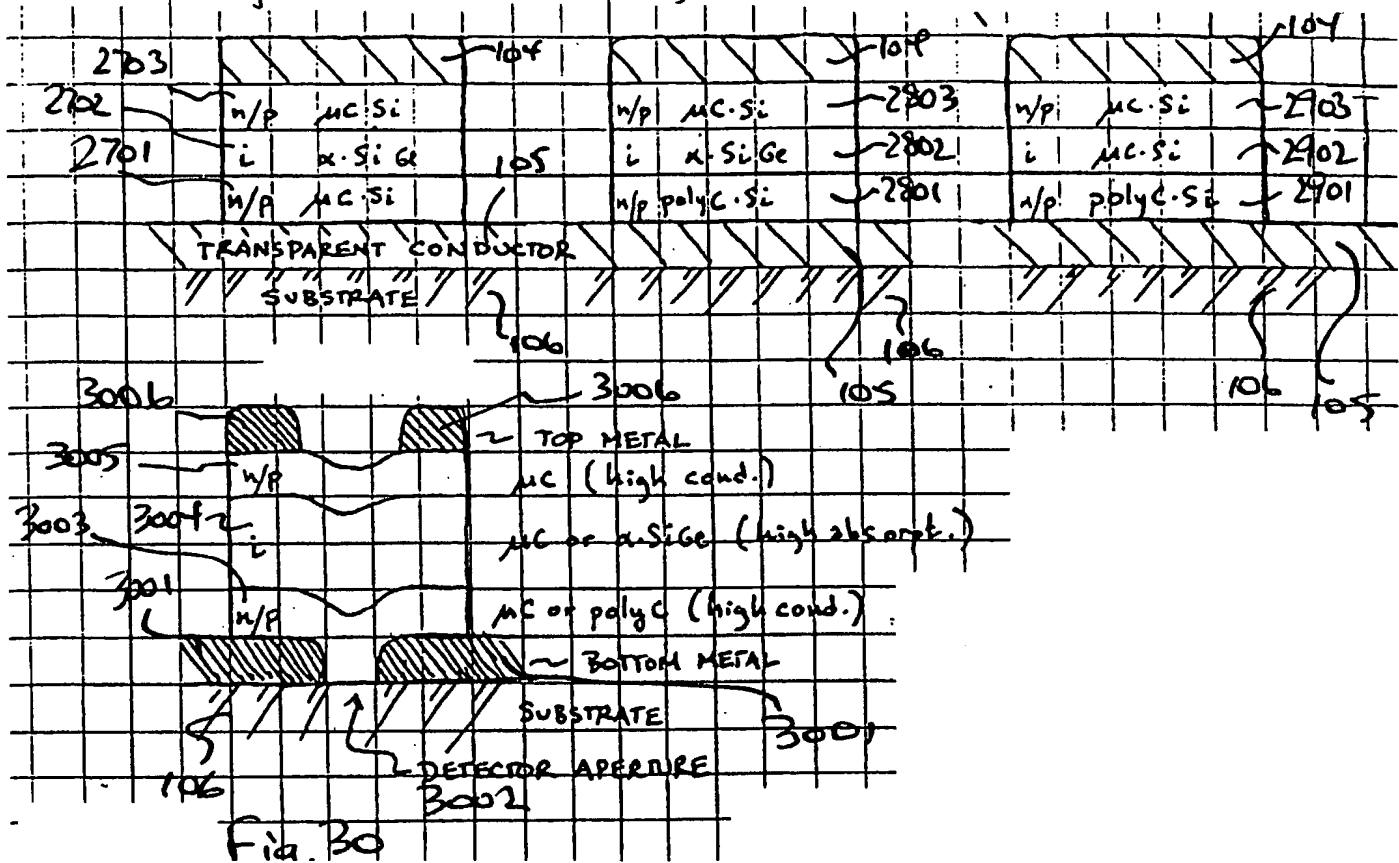 2703
104
104
104
n/p μC·Si
2803
n/p μC·Si
2903
n/p μC·Si
2702
i α·SiGe
2802
i α·SiGe
2902
i μC·Si
2701
n/p μC·Si
105
2801
n/p polyC·Si
2901
n/p polyC·Si
TRANSPARENT CONDUCTOR
SUBSTRATE
106
105
106
106
105
3006
3006
TOP METAL
3005
n/p
μC (high cond.)
3003
3004
i
μC or α·SiGe (high absorpt.)
3001
n/p
μC or polyC (high cond.)
BOTTOM METAL
SUBSTRATE
3001
106
DETECTOR APERTURE
3002
Fig. 30